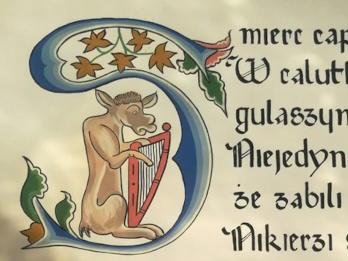 Smierc cap
W calutk
gulaszyn
Niejedyn
że zabili
Nikierzi s